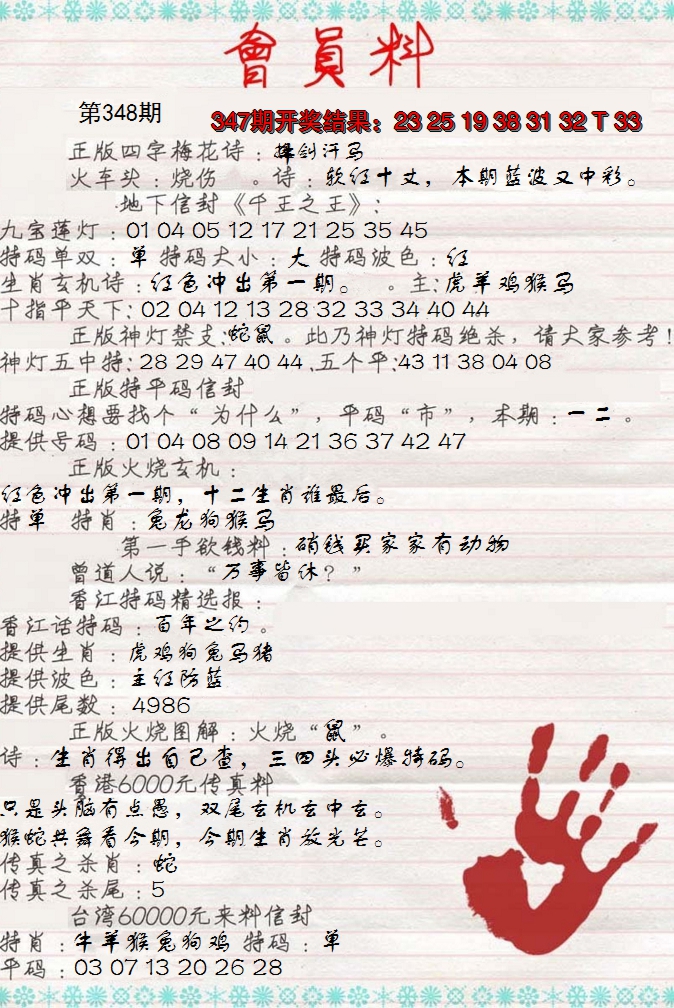 會員料
第348期
347期开奖结果：23 25 19 38 31 32 T 33
正版四字梅花诗：剑汗马
火车头：烧伤 。诗：软红十丈，本期蓝波又中彩。
地下信封《千王之王》：
九宝莲灯：01 04 05 12 17 21 25 35 45
特码单双：单 特码大小：大 特码波色：红
生肖玄机诗：红色冲出第一期。 。主：虎羊鸡猴马
十指平天下：02 04 12 13 28 32 33 34 40 44
正版神灯禁支：蛇鼠。此乃神灯特码绝杀，请大家参考！
神灯五中特：28 29 47 40 44 .五个平：43 11 38 04 08
正版特平码信封
特码心想要找个“为什么”，平码“市”，本期：一二。
提供号码：01 04 08 09 14 21 36 37 42 47
正版火烧玄机：
红色冲出第一期，十二生肖谁最后。
特单 特肖：兔龙狗猴马
第一手欲钱料：硝钱买家家有动物
曾道人说：“万事皆休？”
香江特码精选报：
香江话特码：百年之约。
提供生肖：虎鸡狗兔马猪
提供波色：主红防蓝
提供尾数：4986
正版火烧图解：火烧“鼠”。
诗：生肖得出自己查，三四头必爆特码。
香港6000元传真料
只是头脑有点愚，双尾玄机玄中玄。
猴蛇共舞看今期，今期生肖放光芒。
传真之杀肖：蛇
传真之杀尾：5
台湾60000元来料信封
特肖：牛羊猴兔狗鸡 特码：单
平码：03 07 13 20 26 28